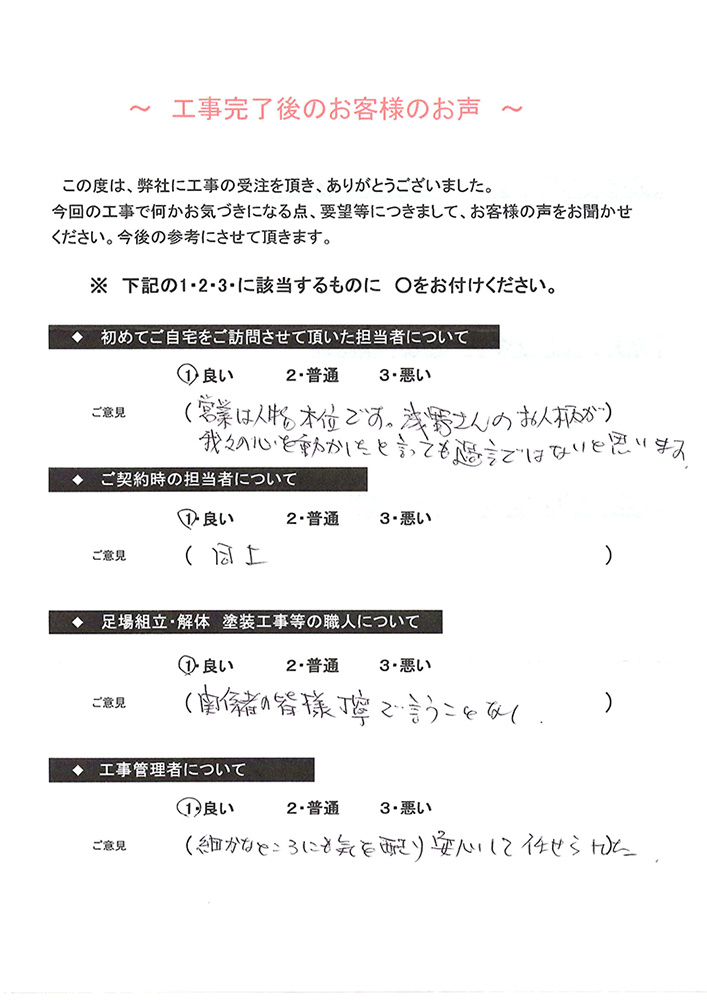 ～ 工事完了後のお客様のお声 ～
この度は、弊社に工事の受注を頂き、ありがとうございました。
今回の工事で何かお気づきになる点、要望等につきまして、お客様の声をお聞かせ
ください。今後の参考にさせて頂きます。
※ 下記の1・2・3・に該当するものに ○をお付けください。
◆ 初めてご自宅をご訪問させて頂いた担当者について
1・良い 2・普通 3・悪い
ご意見 (営業は人物本位です。浅野さんのお人柄が)
我々の心を動かしたと言っても過言ではないと思います。
◆ ご契約時の担当者について
1・良い 2・普通 3・悪い
ご意見 ( 同上 )
◆ 足場組立・解体 塗装工事等の職人について
1・良い 2・普通 3・悪い
ご意見 (関係者の皆様丁寧で言うことなし. )
◆ 工事管理者について
1・良い 2・普通 3・悪い
ご意見 (細かなところにも気を配り安心して任せられた.